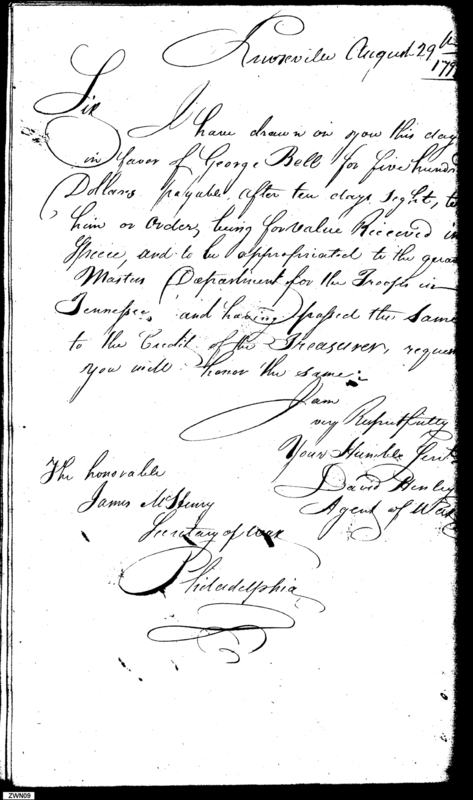 Knoxville August 29th
179
Sir
I have drawn on you this day
in favor of George Bell for five hundr
Dollars payable after ten days sight, to
him or order, being for value Received in
Specie, and to be appropriated to the quar
Masters Department for the Troops in
Tennessee, and having passed the same
to the Credit of the Treasurer, reques
you will honor the same.
I am
very Respectfully
Your Humble Servt
David Henley
Agent of War
The honorable
James McHenry
Secretary of War
Philadelphia
ZWN09